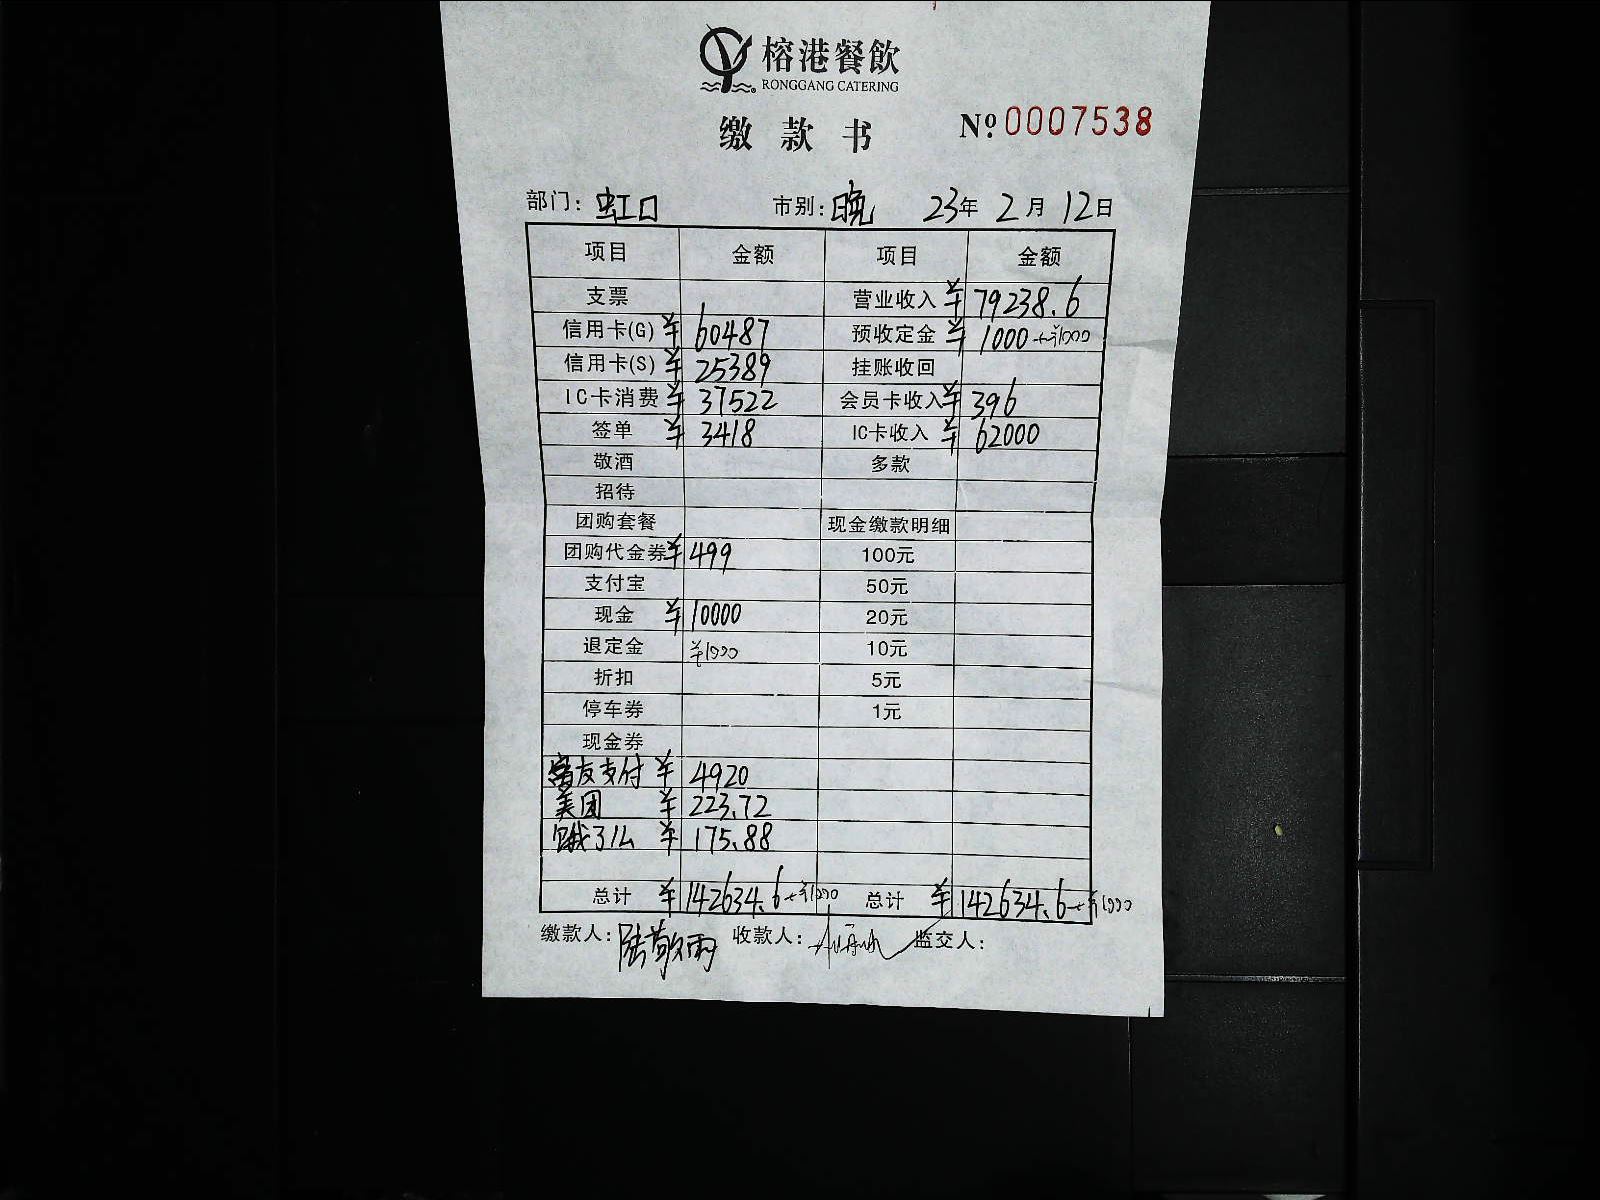 榕港餐飲
RONGGANG CATERING
缴款书 Nº 0007538
部门: 虹口 市别: 晚 23年 2月 12日
项目 金额 项目 金额
支票 营业收入 ¥ 79238.6
信用卡(G) ¥ 60487 预收定金 ¥ 1000 +¥1000
信用卡(S) ¥ 25389 挂账收回
IC卡消费 ¥ 37522 会员卡收入 ¥ 396
签单 ¥ 3418 IC卡收入 ¥ 62000
敬酒 多款
招待
团购套餐 现金缴款明细
团购代金券 ¥ 499 100元
支付宝 50元
现金 ¥ 10000 20元
退定金 ¥1000 10元
折扣 5元
停车券 1元
现金券
友支付 ¥ 4920
美团 ¥ 223.72
饿了么 ¥ 175.88
总计 ¥ 142634.6 +¥1000 总计 ¥ 142634.6 +¥1000
缴款人: 陆敬雨 收款人: 监交人: